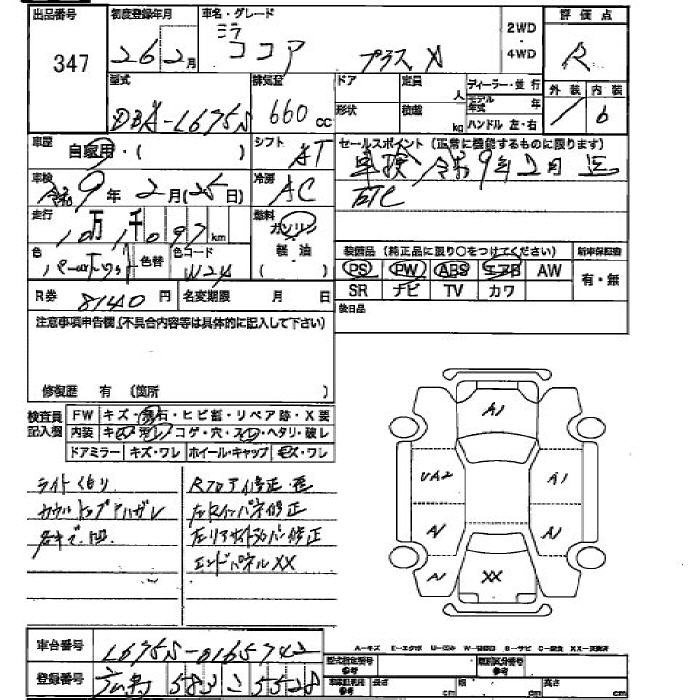 出品番号 初度登録年月 車名・グレード 評価点
347 26 2月 ミラ ココア プラス X 2WD・4WD R
型式 排気量 ドア 定員 人 ディーラー・並行 外装 内装
DBA-L675S 660cc 形状 積載 kg モデル年式 年 ハンドル 左・右 / 6
車歴 自家用・( ) シフト AT セールスポイント(正常に機能するものに限ります)
車検 令和9年2月(25日) 冷房 AC 車検 令和9年2月 迄
ETC
走行 10万1千097km 燃料 ガソリン 軽油 ( )
色 色替 色コード W24
装備品(純正品に限り○をつけてください) 新車保証書
PS PW ABS エアB AW 有・無
SR ナビ TV カワ
R券 8140円 名変期限 月 日 後日品
注意事項申告欄(不具合内容等は具体的に記入して下さい)
修復歴 有 (箇所 )
検査員記入欄 FW キズ・飛石・ヒビ割・リペア跡・X要
内装 キズ・汚れ・コゲ・穴・スレ・ヘタリ・破レ
ドアミラー キズ・ワレ ホイール・キャップ キズ・ワレ
ライトくもり
カウルトップハガレ
各キズ、凹
Rフロアイ修正・歪
左Rインパネ修正
左リアサイドメンバー修正
エンドパネルXX
A1
UA2 A1
A1 A1
A1 XX
A-キズ E-エクボ U-凹み W-補修跡 S-サビ C-腐食 XX-交換済
車台番号 L675S-0165742
登録番号 583 こ 5528
型式指定番号 参考 類別区分番号 参考
車検証記載 参考 長さ cm 幅 cm 高さ cm